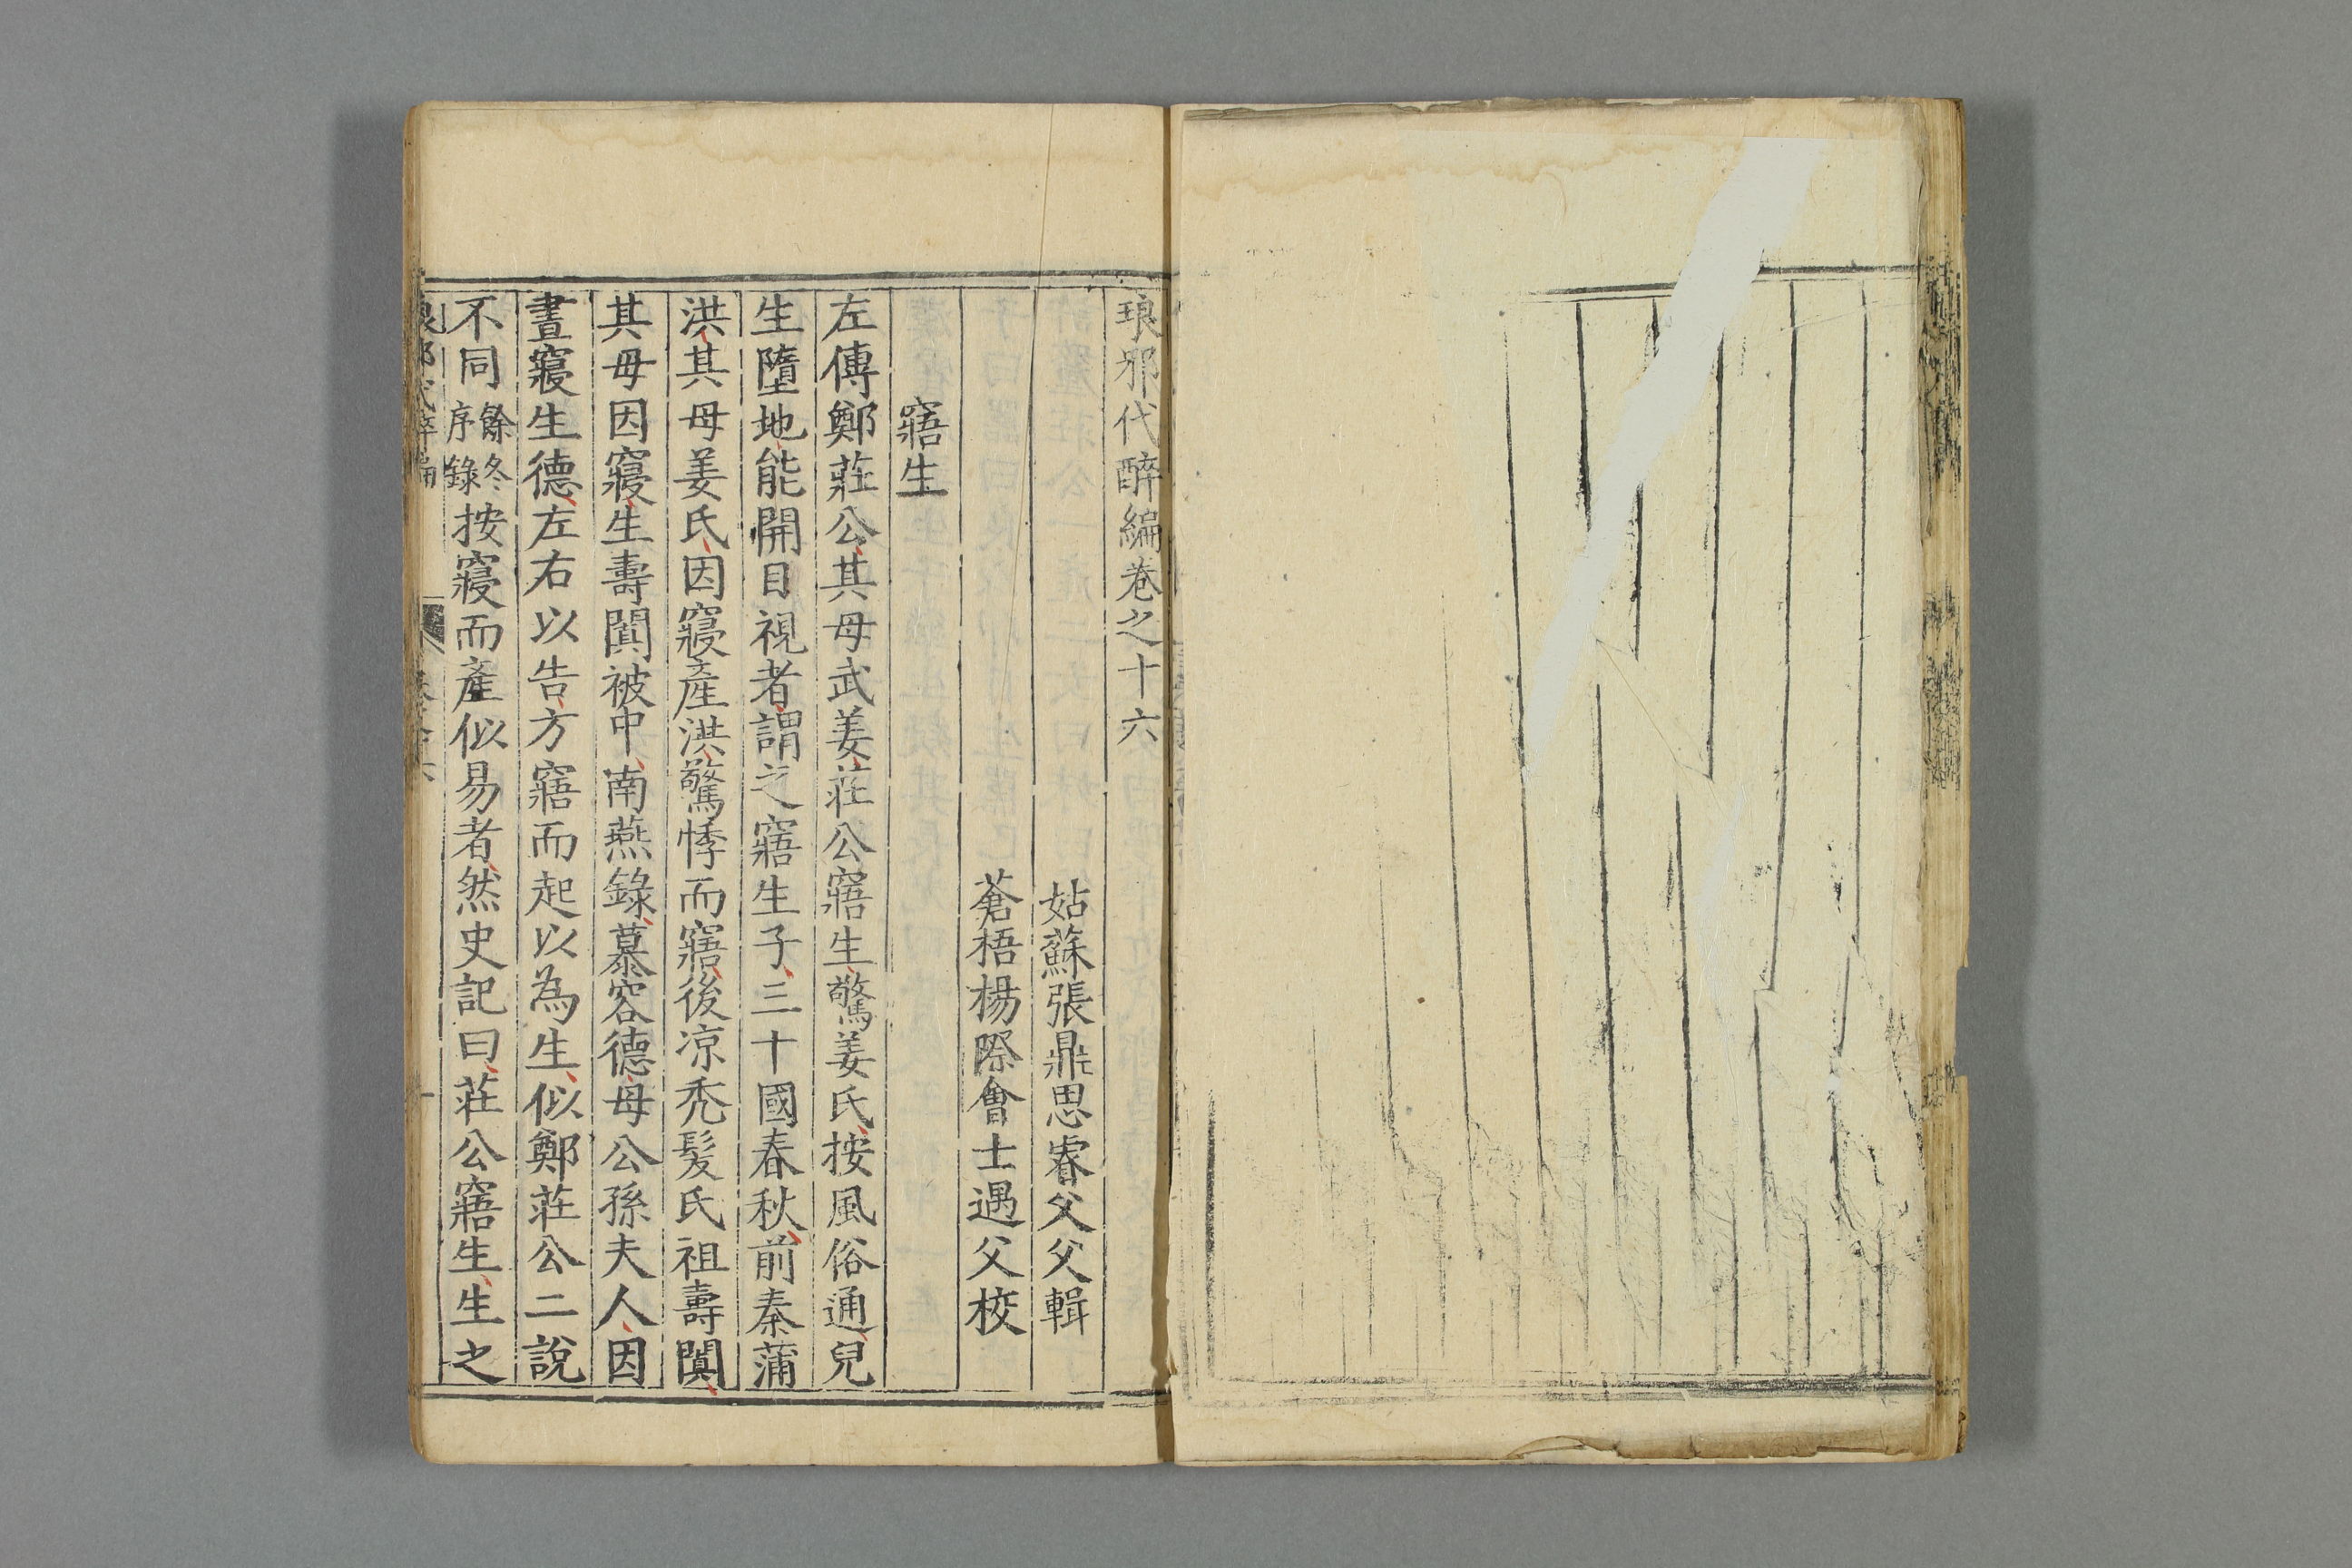 琅邪代醉編卷之十六
姑蘇張鼎思睿父父輯
蒼梧楊際會士遇父校
寤生
左傳鄭莊公其母武姜莊公寤生驚姜氏按風俗通兒
生墮地能開目視者謂之寤生子三十國春秋前秦蒲
洪其母姜氏因寢產洪驚悸而寤後凉禿髮氏祖壽闐
其母因寢生壽闐被中南燕錄慕容德母公孫夫人因
晝寢生德左右以告方寤而起以為生似鄭莊公二說
不同餘冬序錄按寢而產似易者然史記曰莊公寤生生之